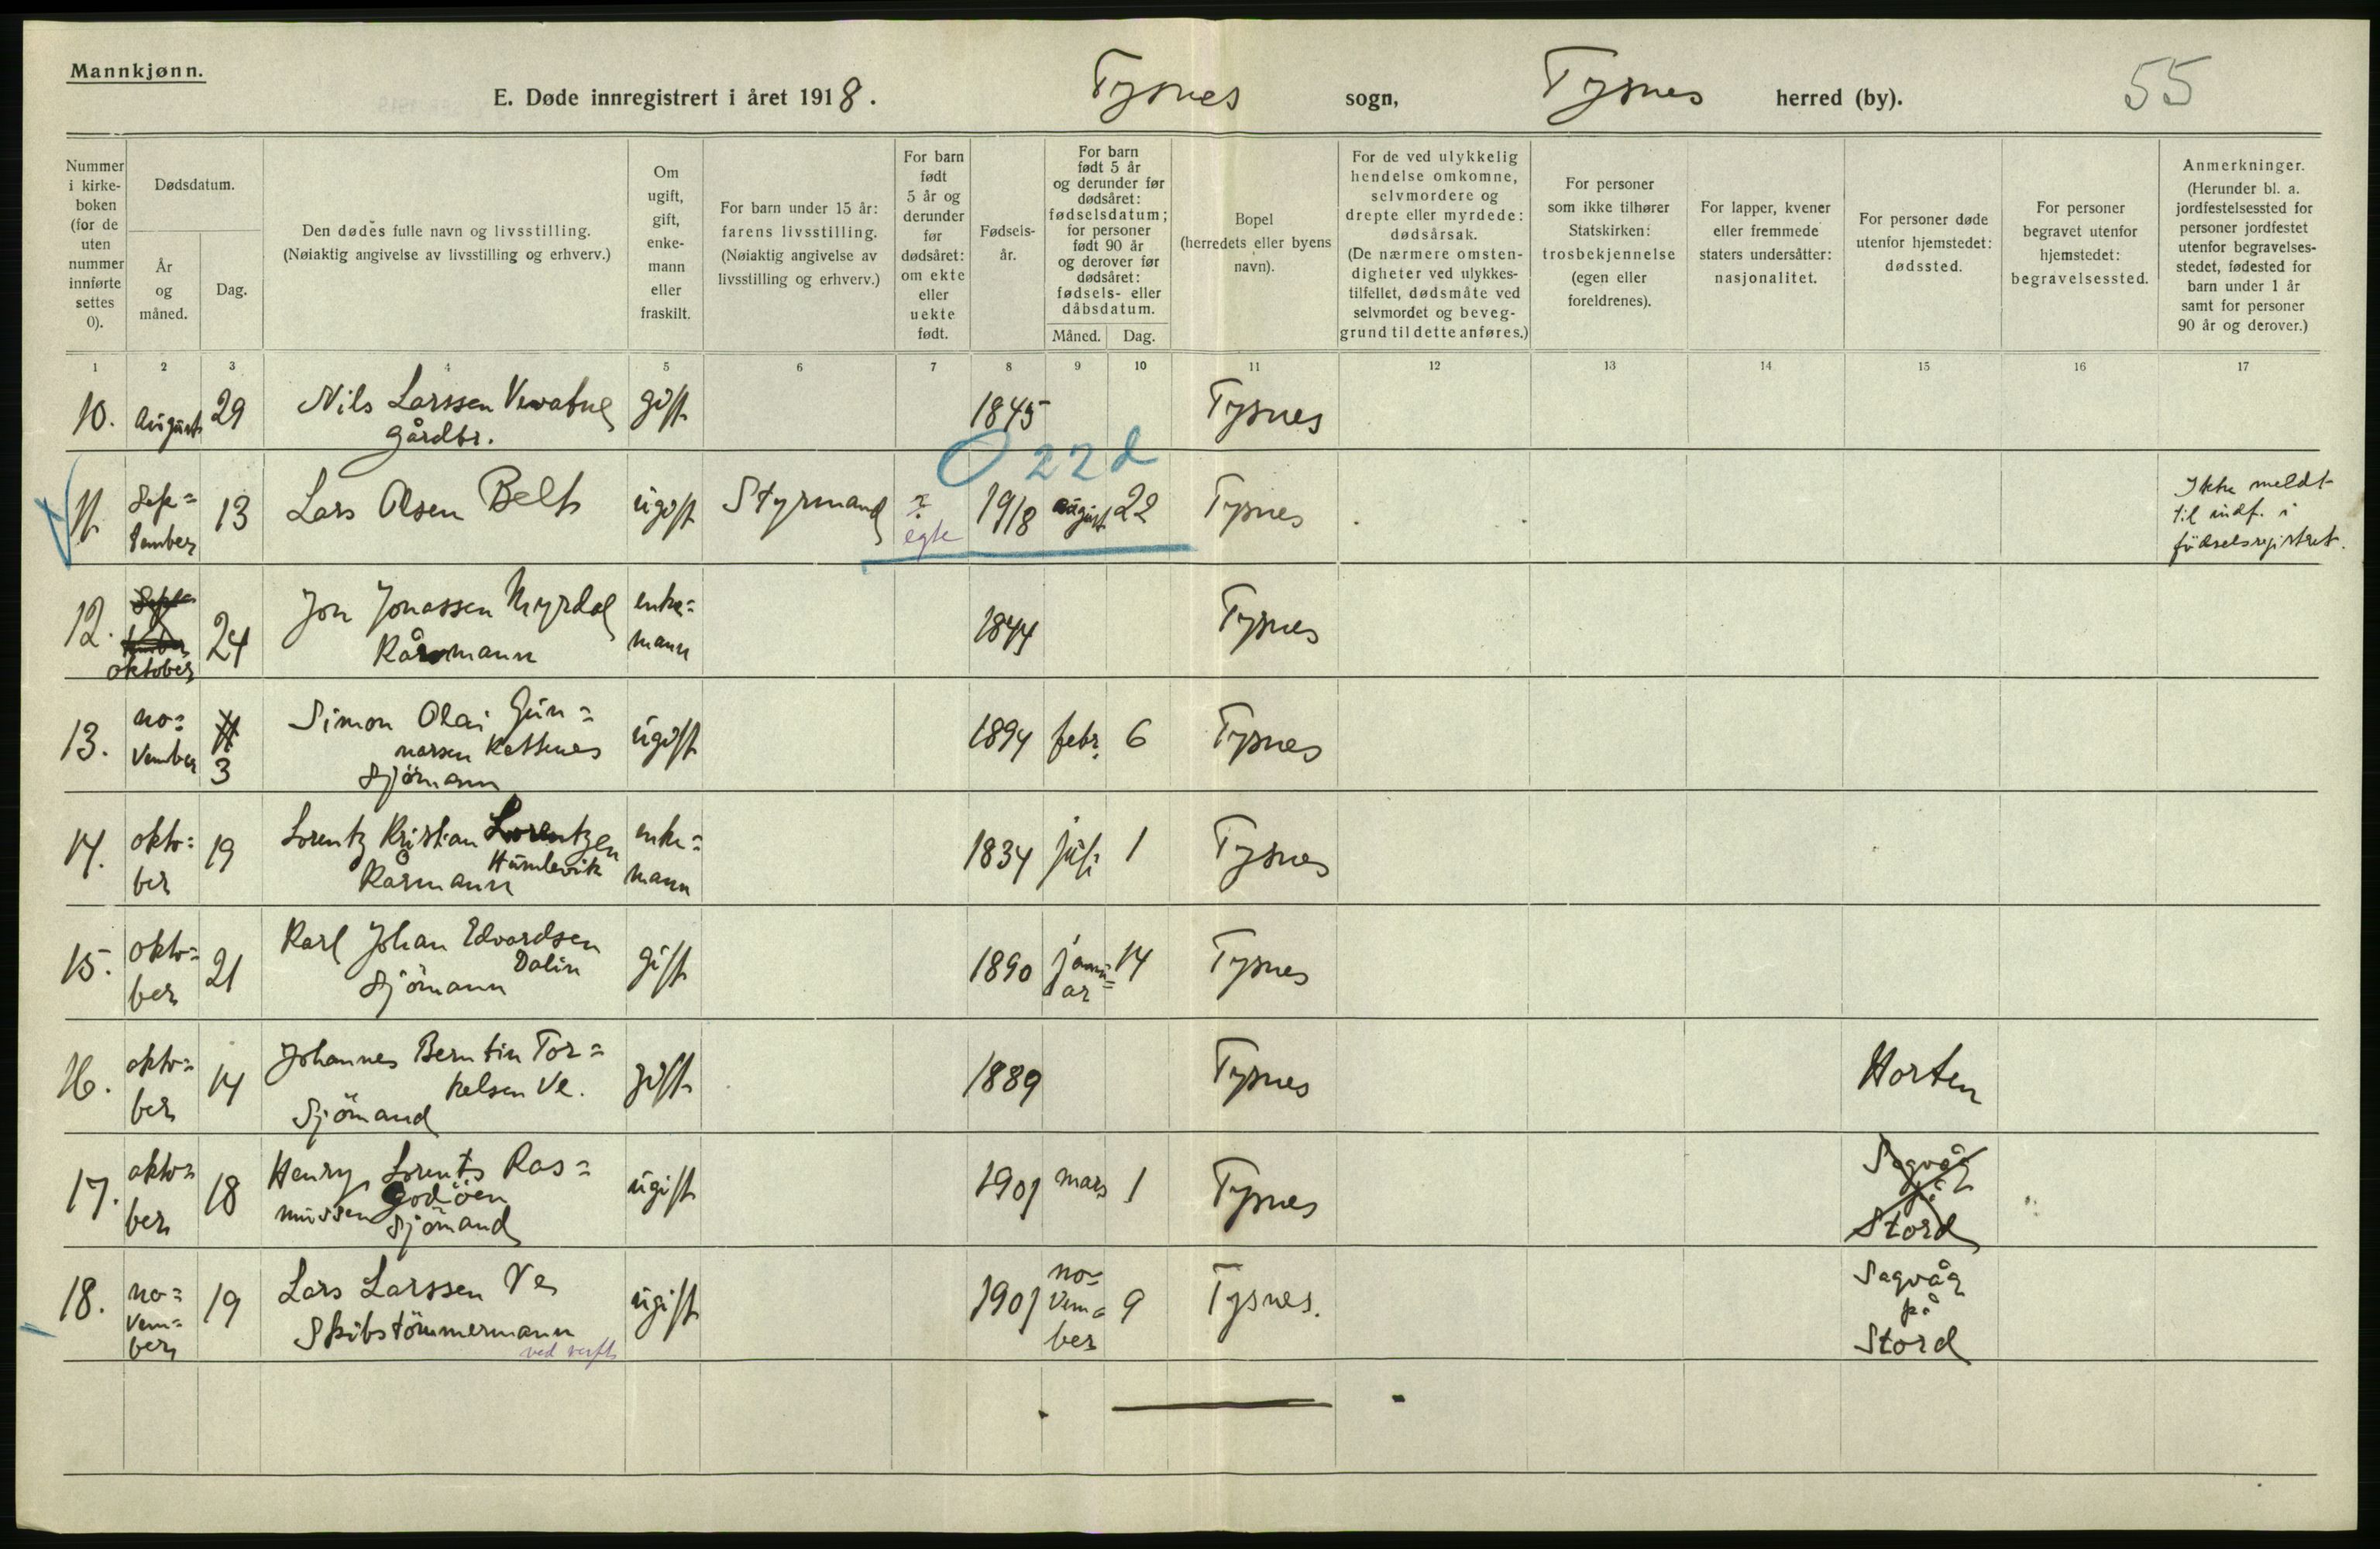 Mannkjønn.
E. Døde innregistrert i året 1918. Tysnes sogn, Tysnes herred (by). 55
Nummer i kirke- boken (for de uten nummer innførte settes 0).
Dødsdatum.
År og måned.
Dag.
Den dødes fulle navn og livsstilling. (Nøiaktig angivelse av livsstilling og erhverv.)
Om ugift, gift, enke- mann eller fraskilt.
For barn under 15 år: farens livsstilling. (Nøiaktig angivelse av livsstilling og erhverv.)
For barn født 5 år og derunder før dødsåret: om ekte eller uekte født.
Fødsels- år.
For barn født 5 år og derunder før dødsåret: fødselsdatum; for personer født 90 år og derover før dødsåret: fødsels- eller dåbsdatum.
Måned. Dag.
Bopel (herredets eller byens navn).
For de ved ulykkelig hendelse omkomne, selvmordere og drepte eller myrdede: dødsårsak. (De nærmere omsten- digheter ved ulykkes- tilfellet, dødsmåte ved selvmordet og beveg- grund til dette anføres.)
For personer som ikke tilhører Statskirken: trosbekjennelse (egen eller foreldrenes).
For lapper, kvener eller fremmede staters undersåtter: nasjonalitet.
For personer døde utenfor hjemstedet: dødssted.
For personer begravet utenfor hjemstedet: begravelsessted.
Anmerkninger. (Herunder bl. a. jordfestelsessted for personer jordfestet utenfor begravelses- stedet, fødested for barn under 1 år samt for personer 90 år og derover.)
1 2 3 4 5 6 7 8 9 10 11 12 13 14 15 16 17
10. August 29 Nils Larssen gift 1845 Tysnes
gårdbr.
0 22 d
11. Sep= tember 13 Lars Olsen Belt ugift Styrmand ? egte 1918 august 22 Tysnes
Ikke meldt
til indf. i
födselsregistret.
12. Sep= tember oktober 24 Jon Jonassen Myrdal enke= mann 1844 Tysnes
Kårmann
13. no= vember 11 3 Simon Olai Gun= ugift 1894 febr. 6 Tysnes
narsen Kattenes
Sjömann
14. okto= ber 19 Lorentz Kristian Lorentzen enke= mann 1834 juli 1 Tysnes
Humlevik
Kårmann
15. okto= ber 21 Karl Johan Edvardsen gift 1890 janu= ar 14 Tysnes
Dalin
Sjömann
16. okto= ber 14 Johannes Berntin Tor= gift 1889 Tysnes Horten
kelsen Ve.
Sjömand
17. okto= ber 18 Henry Lorents Ras= ugift 1901 mars 1 Tysnes Sagvåg på Stord
mussen Godöen
Sjömand
18. no= vem= ber 19 Lars Larssen Ve ugift 1901 no= vem= ber 9 Tysnes. Sagvåg på Stord
Skibstömmermann
ved verft